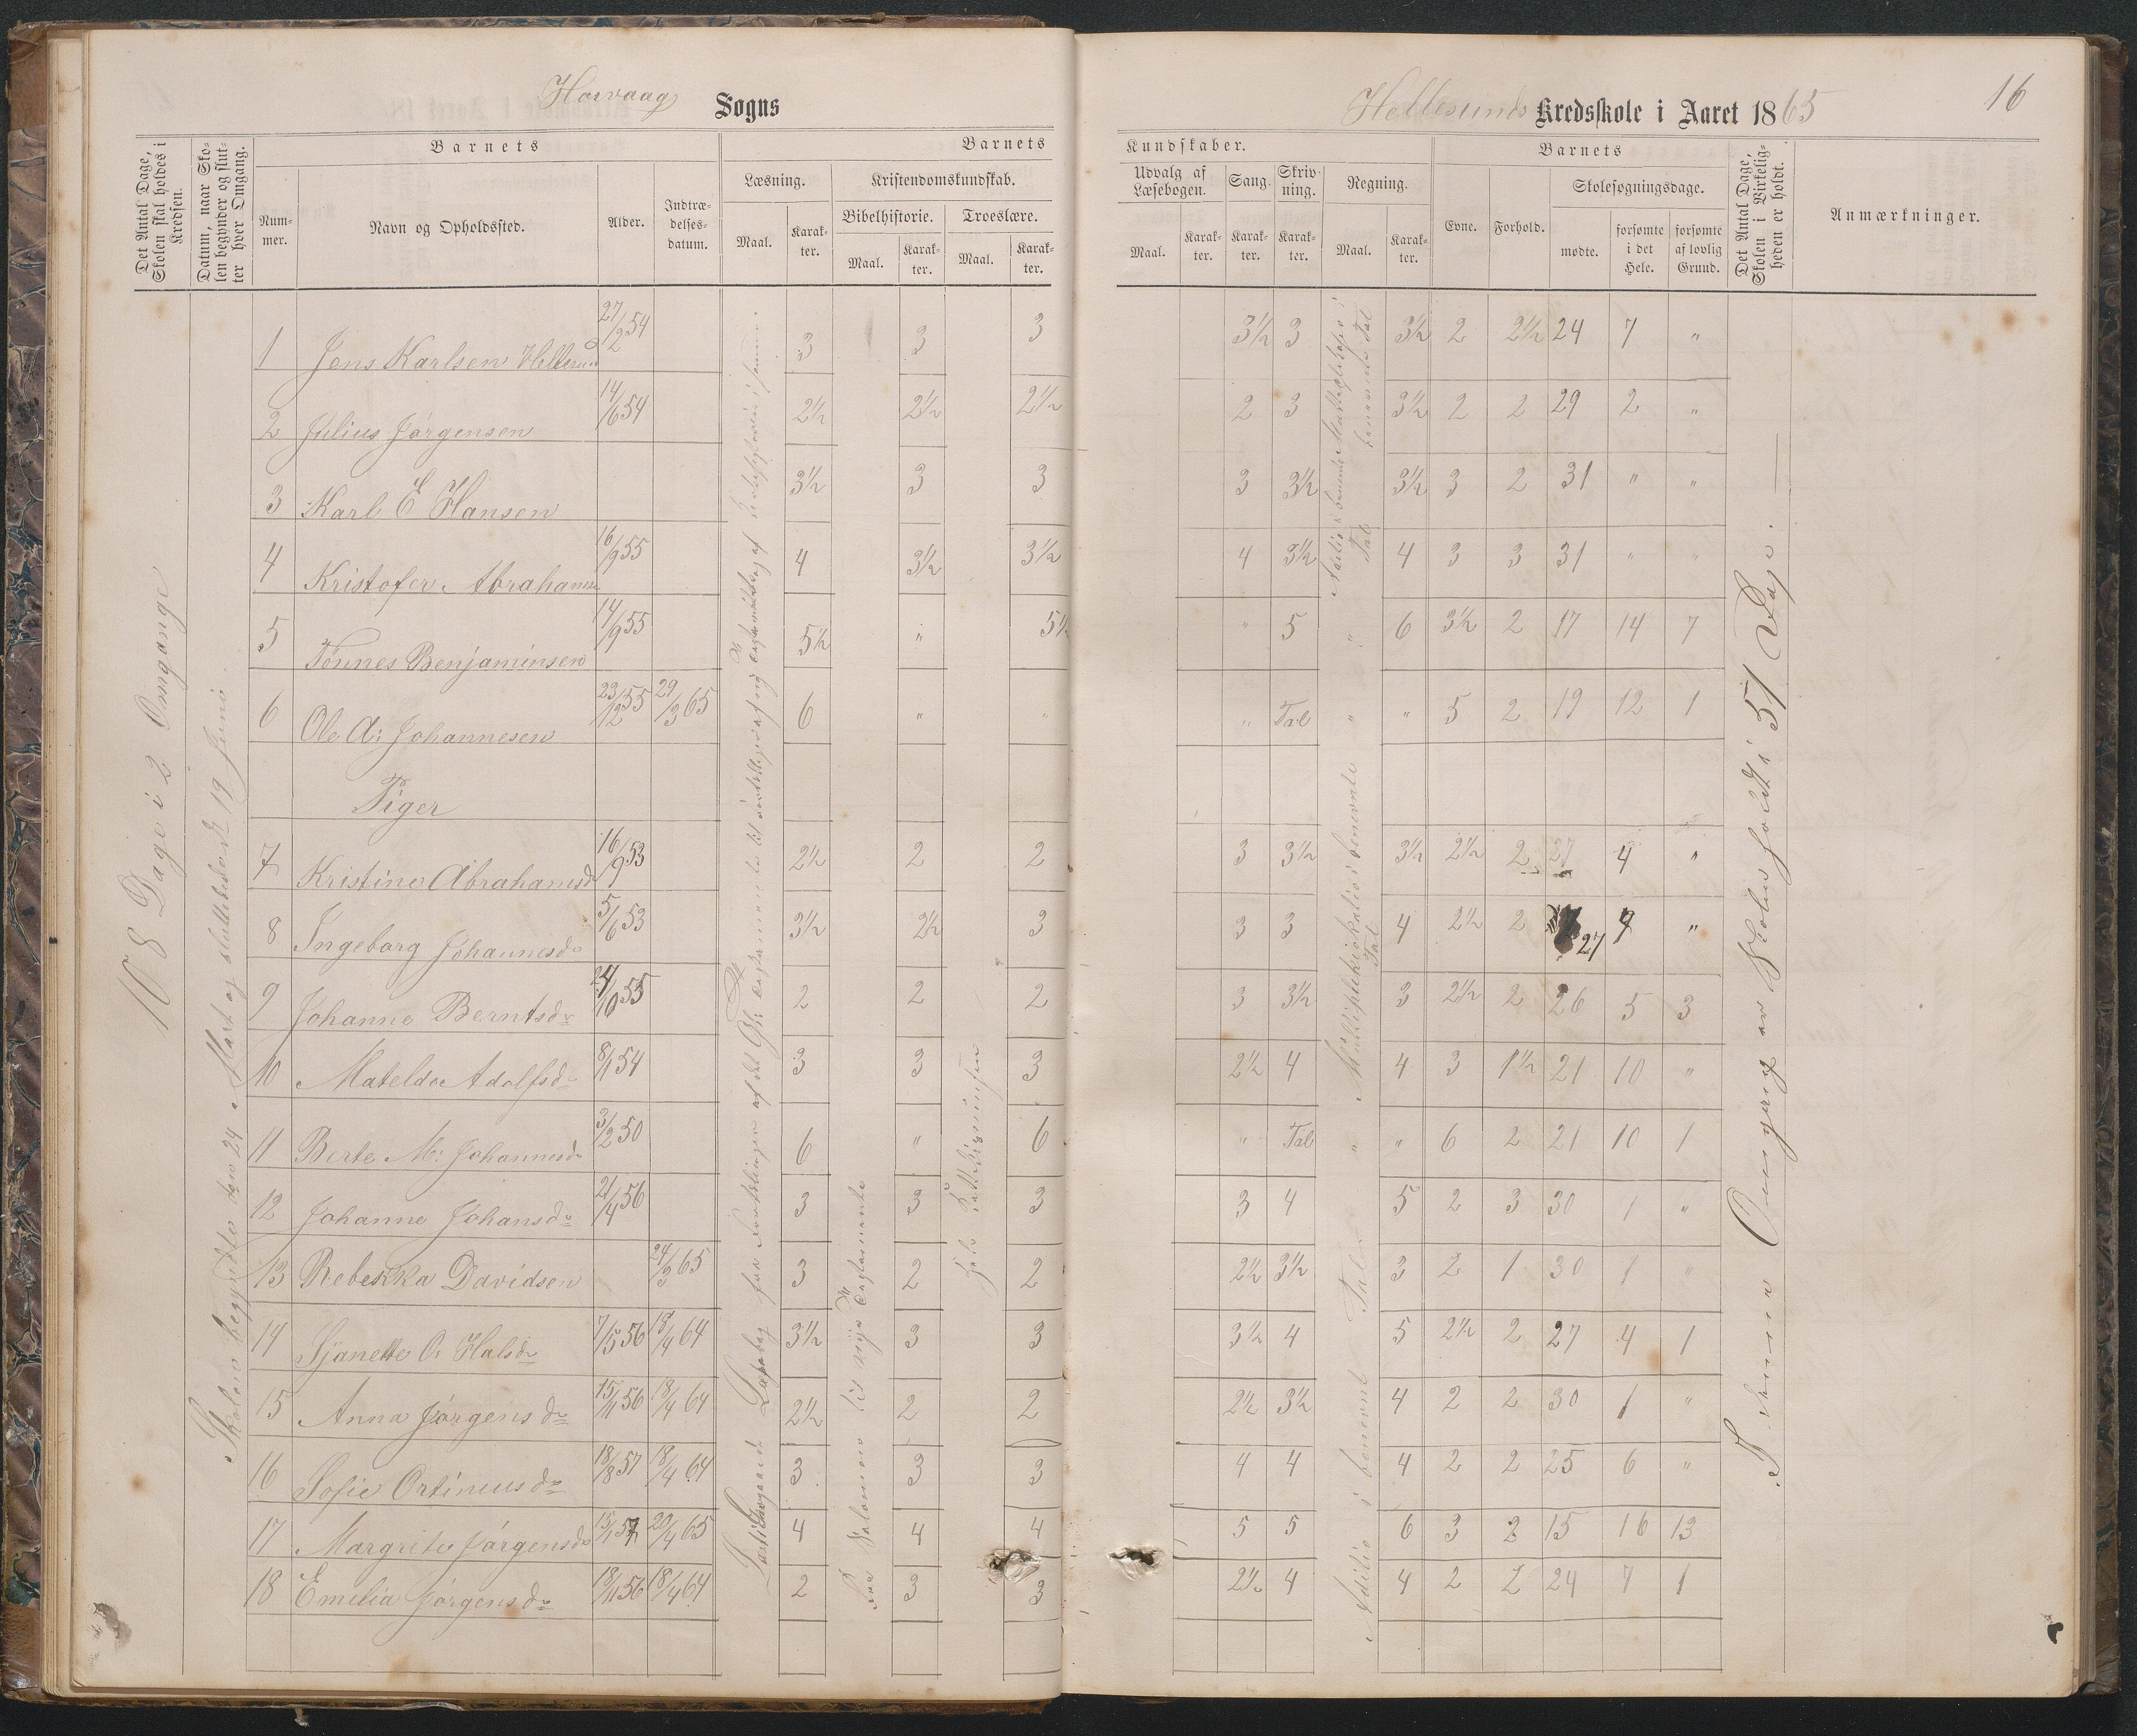 Høivaag Sogns
Hellesunds Kredsskole i Aaret 1865
16
Det Antal Dage, Skolen skal holdes i Kredsen.
Datum, naar Skolen begynder og slutter hver Omgang.
Barnets
Nummer.
Navn og Opholdssted.
Alder.
Indtrædelsesdatum.
Barnets
Læsning.
Maal.
Karakter.
Kristendomskundskab.
Bibelhistorie.
Maal.
Karakter.
Troeslære.
Maal.
Karakter.
Kundskaber.
Udvalg af Læsebogen.
Maal.
Karakter.
Sang.
Karakter.
Skrivning.
Karakter.
Regning.
Maal.
Karakter.
Barnets
Evne.
Forhold.
Skolesøgningsdage.
mødte.
forsømte i det Hele.
forsømte af lovlig Grund.
Det Antal Dage, Skolen i Virkeligheden er holdt.
Anmærkninger.
108 Dage i 2 Omgange
Skolen begyndte den 24 Mart og sluttedes d. 19 Juni
1 Jens Karlsen Hellesund 27/2 54 3 3 3 3½ 3 3½ 2 2½ 24 7 "
2 Julius Jørgensen 14/6 54 2½ 2½ 2½ 2 3 3½ 2 2 29 2 "
3 Karl E Hansen 3½ 3 3 3 3½ 3½ 3 2 31 " "
4 Kristofer Abrahamsen 16/9 55 4 3½ 3½ 4 3½ 4 3 3 31 " "
5 Tønnes Benjaminsen 14/9 55 5½ " 5½ " 5 " 6 3½ 2 17 14 7
6 Ole A: Johannesen 23/12 55 29/3 65 6 " " " Tal " " 5 2 19 12 1
Piger
7 Kristine Abrahamsd 16/9 53 2½ 2 2 3 3½ 3½ 2½ 2 27 4 "
8 Ingeborg Johannesd 5/6 53 3½ 2½ 3 3 3 4 2½ 2 27 4 "
9 Johanne Berntsd 24/10 55 2 2 2 3 3½ 3 2½ 2 26 5 3
10 Matelda Adolfsd 8/1 54 3 3 3 2½ 4 4 3 1½ 21 10 "
11 Berte M: Johannesd 3/2 50 6 " 6 " Tal " " 6 2 21 10 1
12 Johanne Johansd 21/4 56 3 3 3 3 4 5 2 3 30 1 "
13 Rebekka Davidsen 24/3 65 3 2 2 2½ 3½ 3 2 1 30 1 "
14 Sjanette O. Halsd 7/5 56 18/4 64 3½ 3 3 3½ 4 5 2½ 2 27 4 1
15 Anna Jørgensd 15/11 56 18/4 64 2½ 2 2 2½ 3½ 4 2 2 30 1 "
16 Sofie Ortinusd 18/8 57 18/4 64 3 3 3 4 4 4 2 2 25 6 "
17 Margrite Jørgensd 15/1 57 20/4 65 4 4 4 5 5 6 3 2 15 16 13
18 Emelia Jørgensd 18/11 56 18/4 64 2 3 3 2½ 4 4 2 2 24 7 1
Fra Salomon til nye Testamente
hele
Multiplikation i benævnte Tal
Adition i benævnt Tal
I denne Omgang er Skolen holdt i 51 Dage.